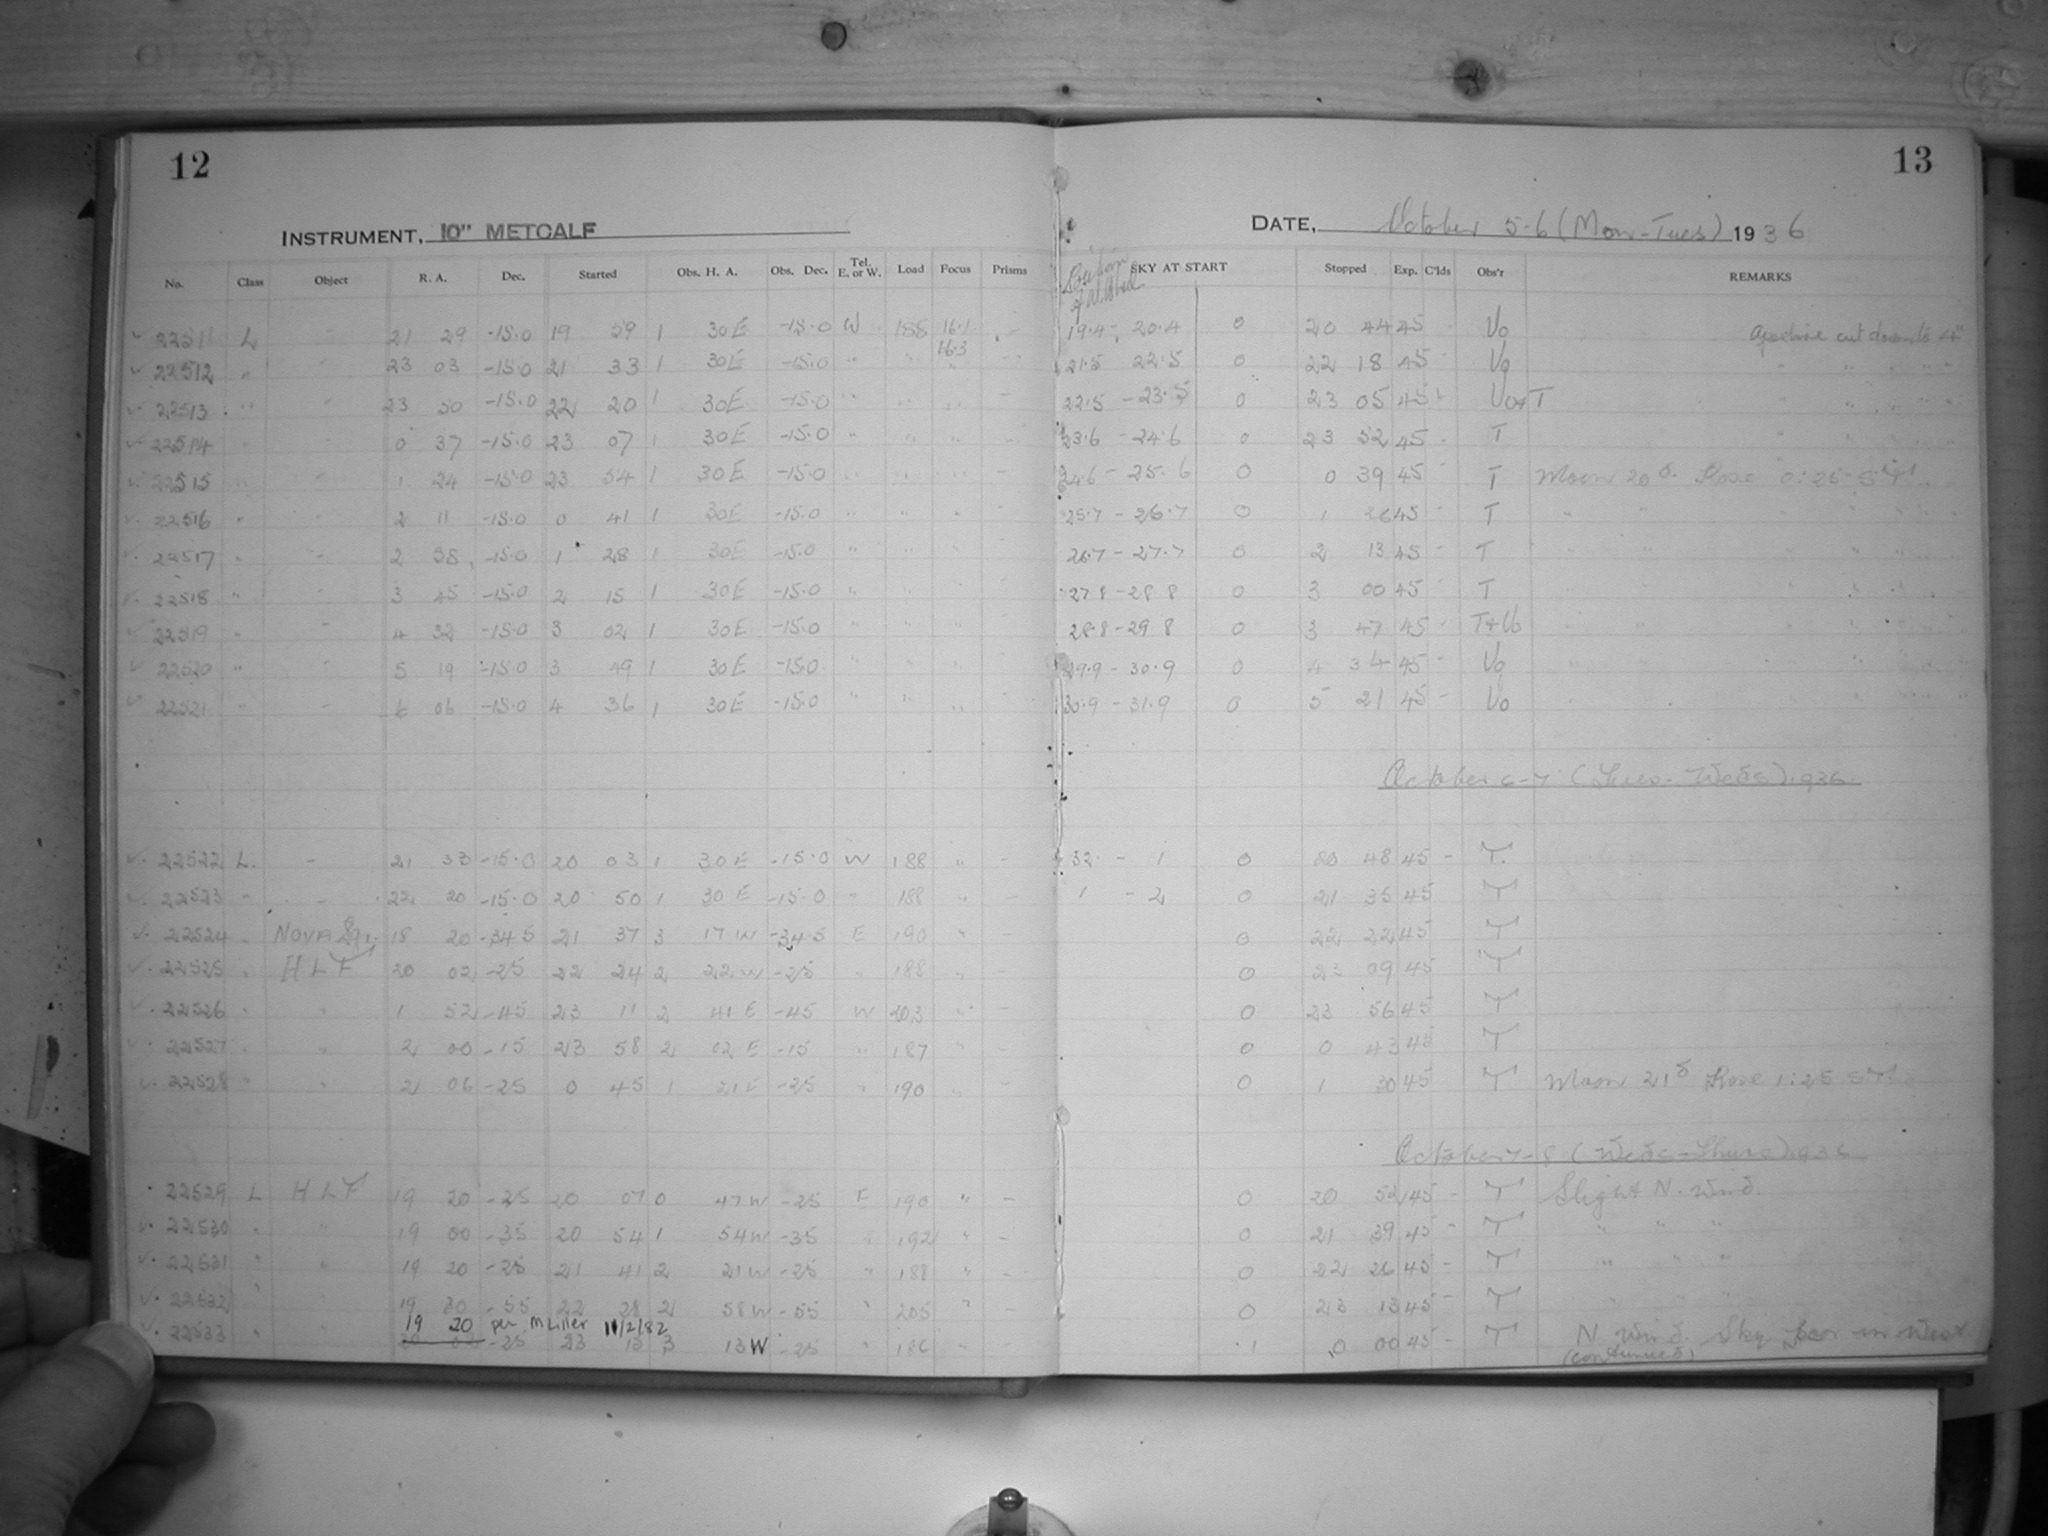 12
13
INSTRUMENT, 10" METCALF
DATE, October 5-6 (Mon-Tues) 1936
No. Class Object R. A. Dec. Started Obs. H. A. Obs. Dec. Tel. E. or W. Load Focus Prisms SKY AT START Stopped Exp. C'lds Obs'r REMARKS
Position of Wheel
22511 L 21 29 -15.0 19 59 1 30E -15.0 W 188 16.1 - 19.4 - 20.4 0 20 44 45 Vo Aperture cut down to 4"
16.3
22512 " 23 03 -15.0 21 33 1 30E -15.0 " " " - 21.5 22.5 0 22 18 45 Vo " " " "
22513 " - 23 50 -15.0 22 20 1 30E -15.0 " " " - 22.5 - 23.5 0 23 05 45 Vo+T " " " "
22514 " - 0 37 -15.0 23 07 1 30E -15.0 " " " - 23.6 - 24.6 0 23 52 45 - T " " " "
22515 " - 1 24 -15.0 23 54 1 30E -15.0 " " " - 24.6 - 25.6 0 0 39 45 - T Moon 20d. Rose 0:25 ST
22516 " - 2 11 -15.0 0 41 1 30E -15.0 " " " - 25.7 - 26.7 0 1 26 45 T " "
22517 " - 2 58 -15.0 1 28 1 30E -15.0 " " " - 26.7 - 27.7 0 2 13 45 - T " "
22518 " - 3 45 -15.0 2 15 1 30E -15.0 " " " - 27.8 - 28.8 0 3 00 45 - T " "
22519 " - 4 32 -15.0 3 02 1 30E -15.0 " " " - 28.8 - 29.8 0 3 47 45 - T+Vo " "
22520 " - 5 19 -15.0 3 49 1 30E -15.0 " " " - 29.9 - 30.9 0 4 34 45 - Vo " "
22521 " - 6 06 -15.0 4 36 1 30E -15.0 " " " - 30.9 - 31.9 0 5 21 45 - Vo " "
October 6-7 (Tues-Weds) 1936.
22522 L. - 21 33 -15.0 20 03 1 30E -15.0 W 188 " - 32. - 1 0 20 48 45 - T.
22523 " - 22 20 -15.0 20 50 1 30E -15.0 " 188 " - 1 - 2 0 21 35 45 T
22524 " NOVA Sgr. 18 20 -34.5 21 37 3 17W -34.5 E 190 " - 0 22 22 45 T
22525 " HLF 20 02 -25 22 24 2 22W -25 " 188 " - 0 23 09 45 T
22526 " " 1 52 -45 23 11 2 41E -45 W 203 " - 0 23 56 45 T
22527 " " 2 00 -15 23 58 2 02E -15 " 187 " - 0 0 43 45 T
22528 " " 2 06 -25 0 45 1 21E -25 " 190 " 0 1 30 45 T Moon 21d Rose 1:25 ST
October 7-8 (Weds-Thurs) 1936
22529 L HLF 19 20 -25 20 07 0 47W -25 E 190 " - 0 20 52 45 - T Slight N. Wind.
22530 " " 19 00 -35 20 54 1 54W -35 " 192 " - 0 21 39 45 - T " " "
22531 " " 19 20 -25 21 41 2 21W -25 " 188 " - 0 22 26 45 - T " " "
22532 " " 19 30 -55 22 28 2 58W -55 " 205 " - 0 23 13 45 - T " " " "
19 20 per M Liller 11/2/82
22533 " " 20 02 -25 23 15 3 13W -25 " 186 " - .1 0 00 45 - T N. Wind. Sky poor in West
(continued)